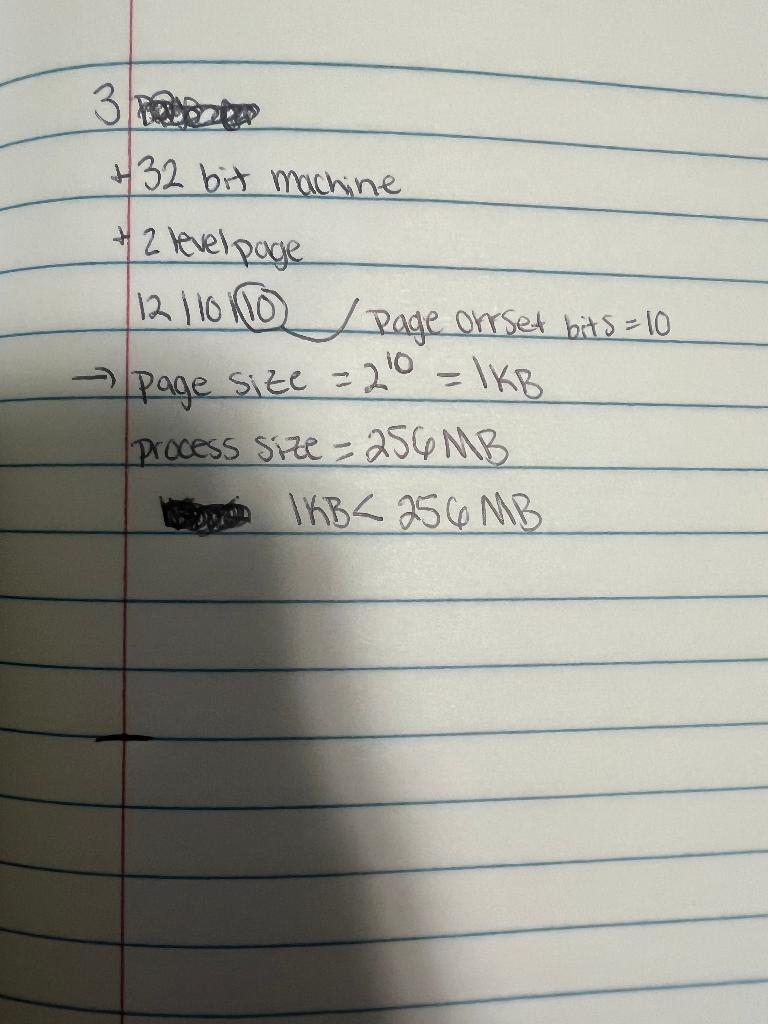 3
+32 bit machine
+2 level page
12 | 10 | 10 Page offset bits = 10
→ page size = 2¹⁰ = 1KB
process size = 256MB
1KB < 256 MB